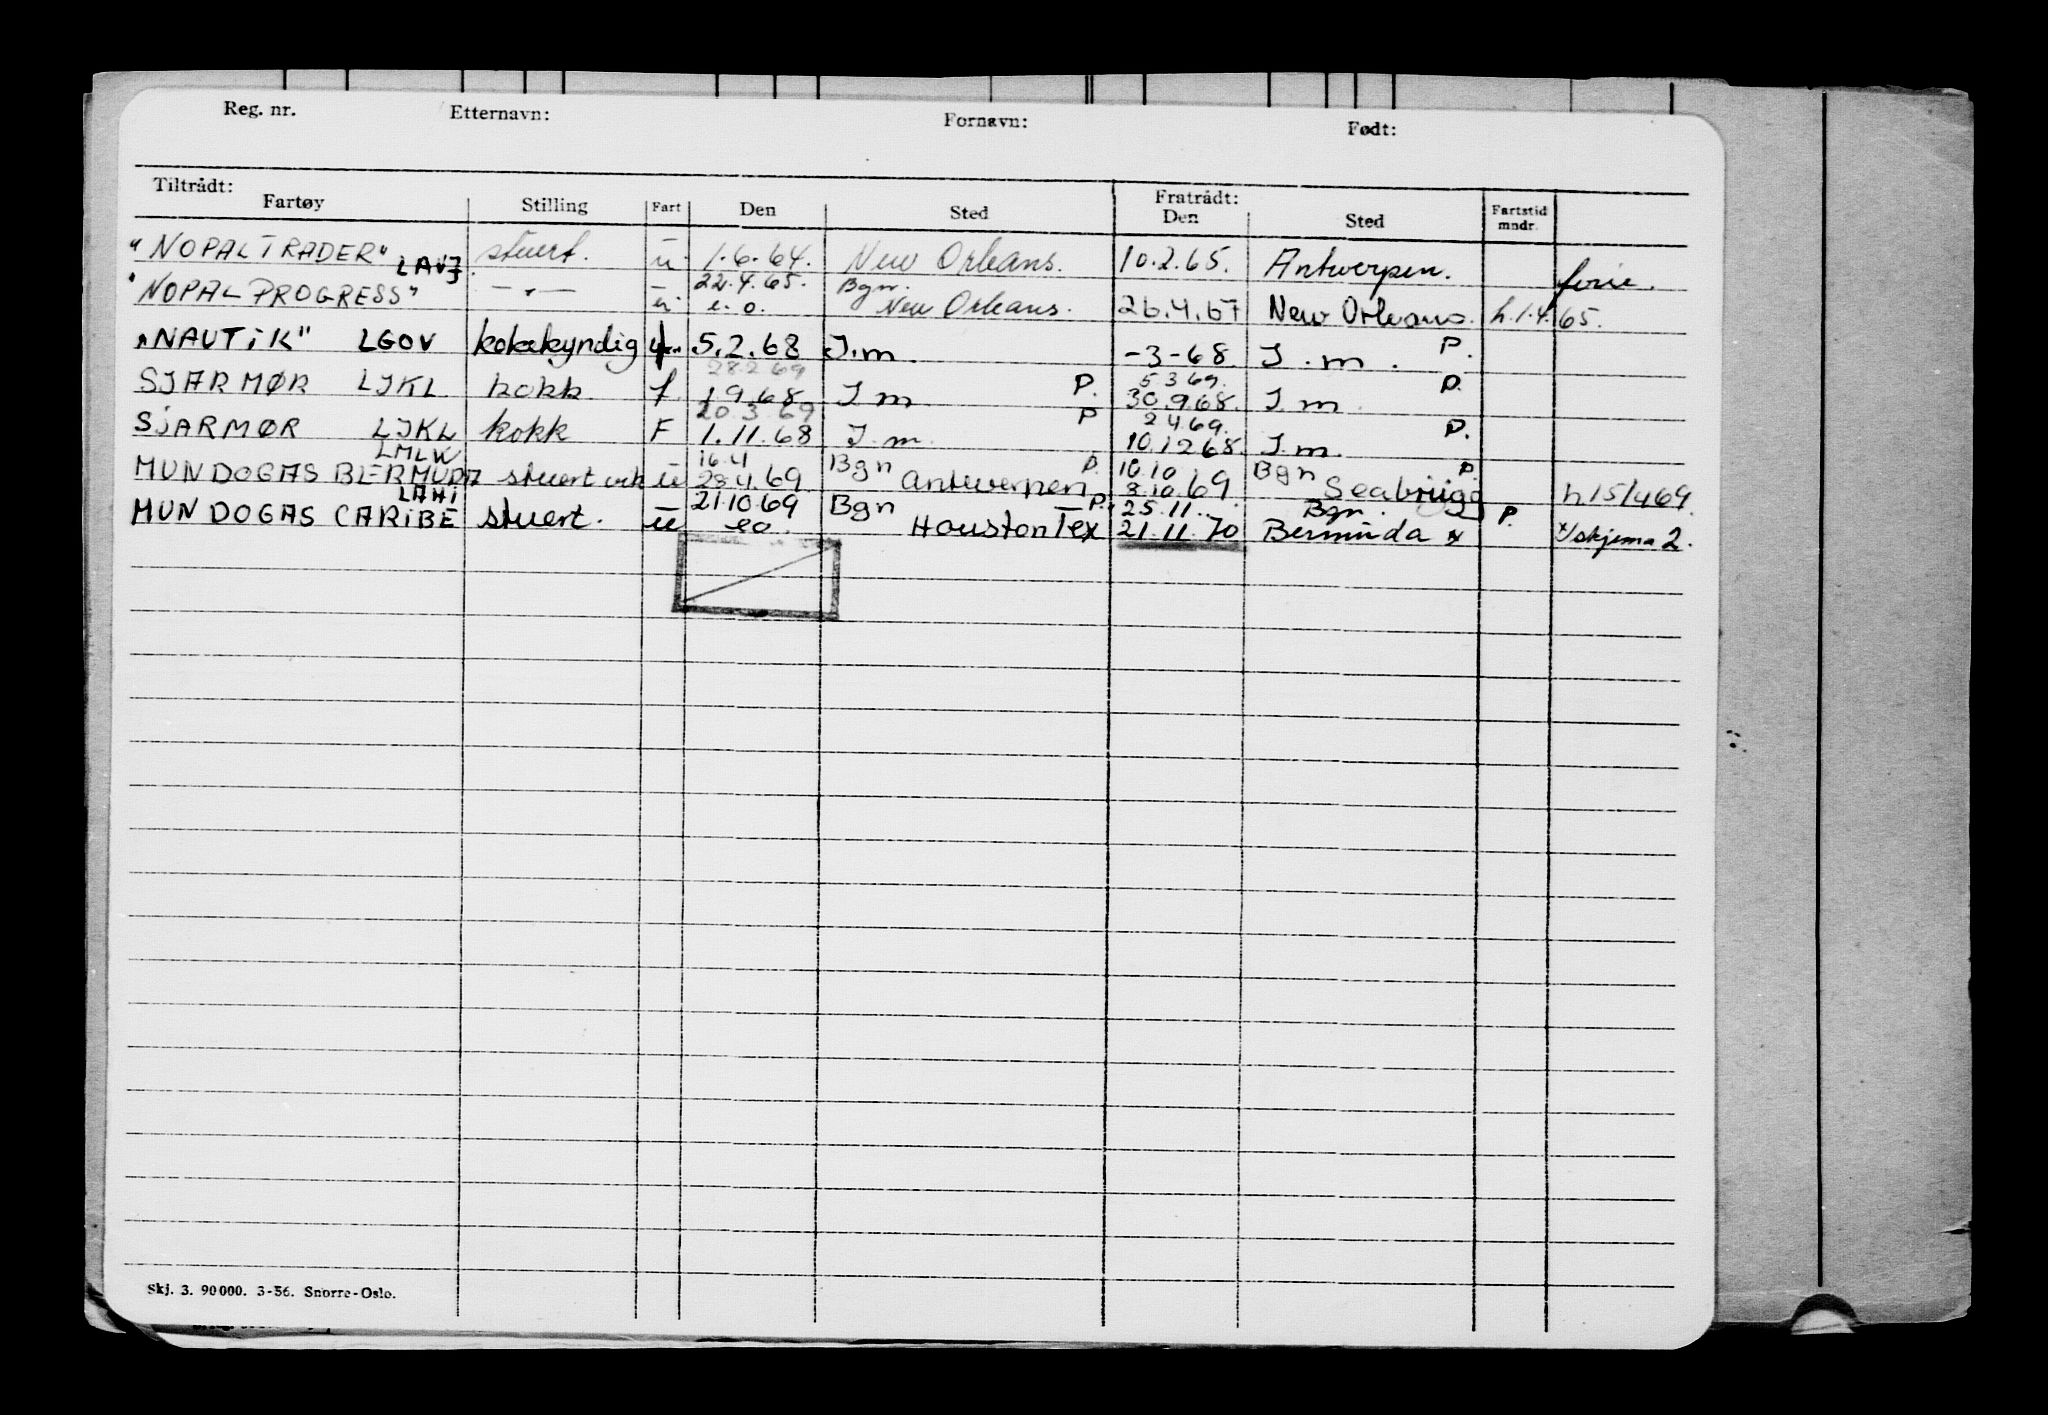 Reg. nr. Etternavn: Fornavn: Født:
Tiltrådt: Fratrådt:
Fartøy Stilling Fart Den Sted Den Sted Fartstid mndr.
"NOPAL TRADER" stuert. u 1.6.64. New Orleans. 10.2.65. Antwerpen. ferie.
LAVJ 22.4.65. Bgn.
"NOPAL PROGRESS" — " — u e.o. New Orleans. 26.4.67 New Orleans. h.1.4.65.
"NAUTiK" LGOV kokekyndig 5.2.68 I.m. -3-68 I.m. P.
28.2.69 5 3 69.
SJARMØR LJKL kokk f 1.9.68 I m P. 30.9.68. I.m. P.
20.3.69 2 4 69.
SJARMØR LJKL kokk F 1.11.68 I.m. P 10.12 68. I.m. P.
LMLW 16.4 Bgn P. 10.10 Bgn P
MUNDOGAS BERMUDA stuert u 28.4.69 Antwerpen 8.10.69 h 15/4 69.
LAHI 21.10.69 Bgn P. 25.11. Bgn.
MUNDOGAS CARiBE stuert. u eo. Houston Tex 21.11.70 Bermuda P. skjema 2.
Skj. 3. 90 000. 3-56. Snorre-Oslo.